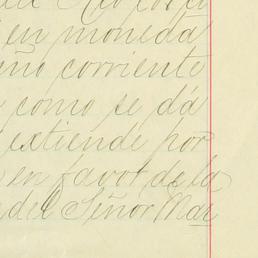 en moneda
corriente
como se dá
extiende por
en favor de la
del Señor Mar